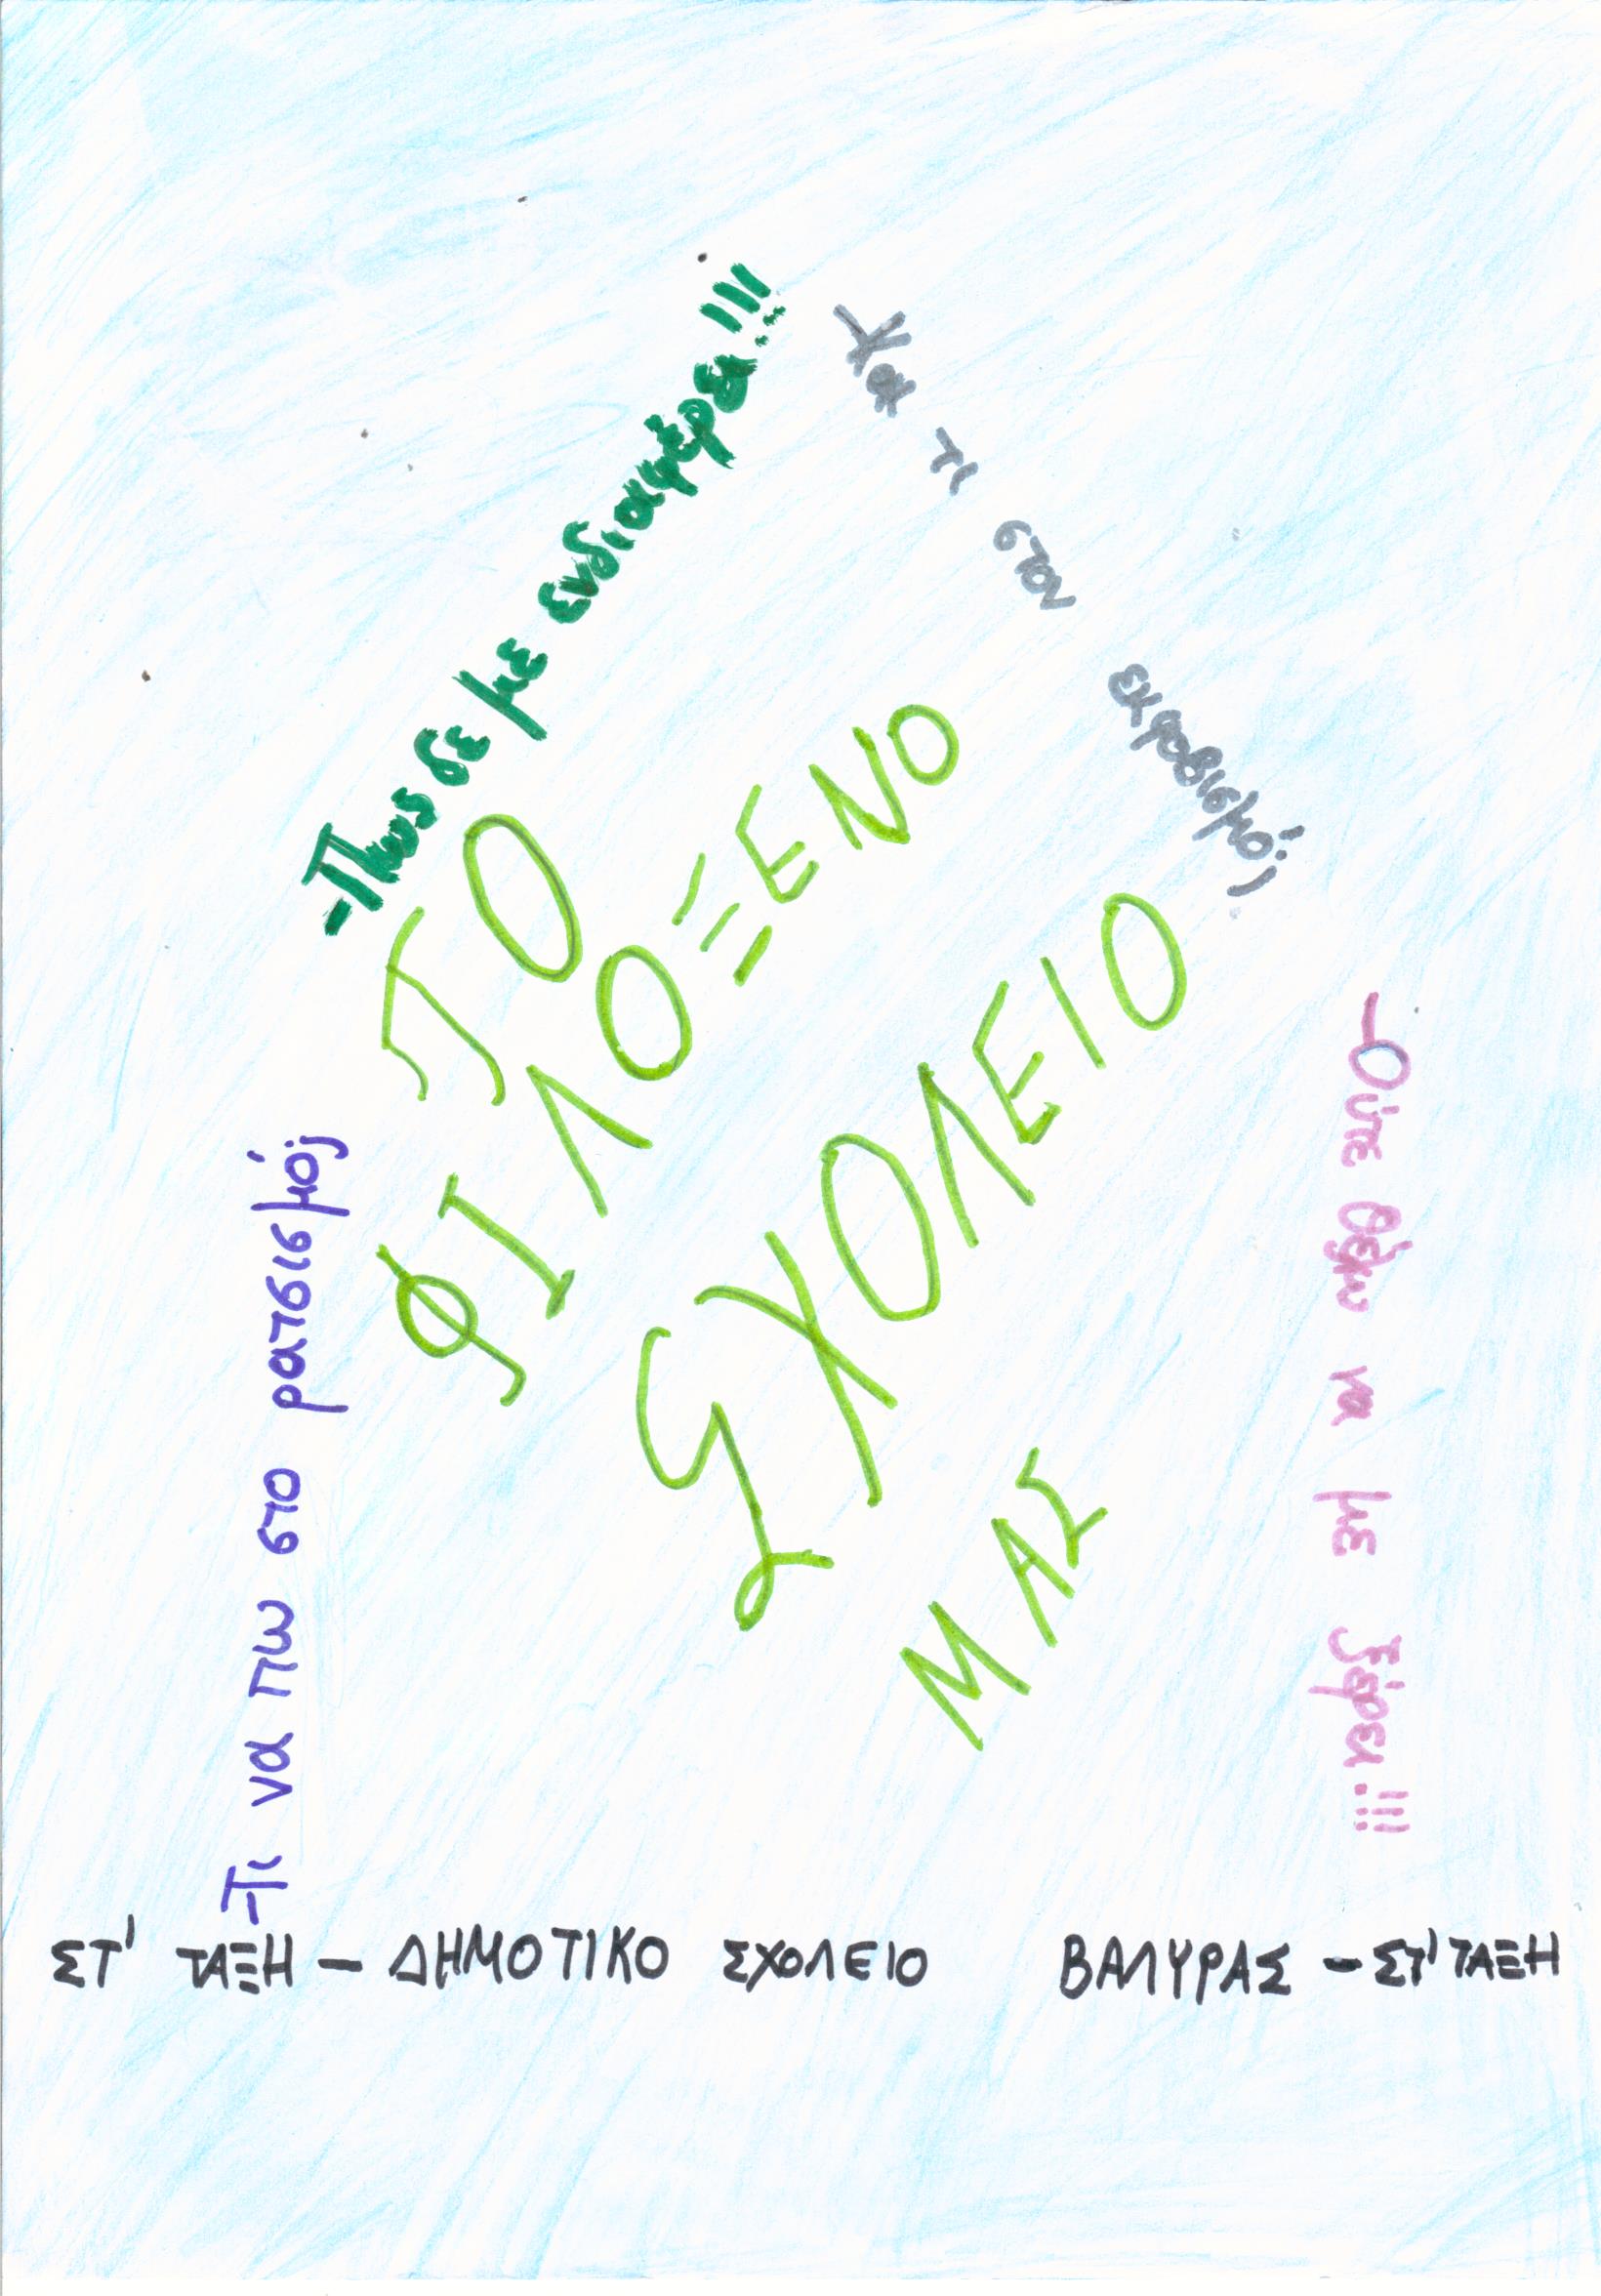 -Τι να πω στο ρατσισμό;
-Πως δε με ενδιαφέρει!!!
Και τι στον εκφοβισμό;
-Ούτε θέλω να με ξέρει!!!
ΤΟ
ΦΙΛΟΞΕΝΟ
ΣΧΟΛΕΙΟ
ΜΑΣ
ΣΤ' ΤΑΞΗ - ΔΗΜΟΤΙΚΟ ΣΧΟΛΕΙΟ ΒΑΛΥΡΑΣ - ΣΤ' ΤΑΞΗ